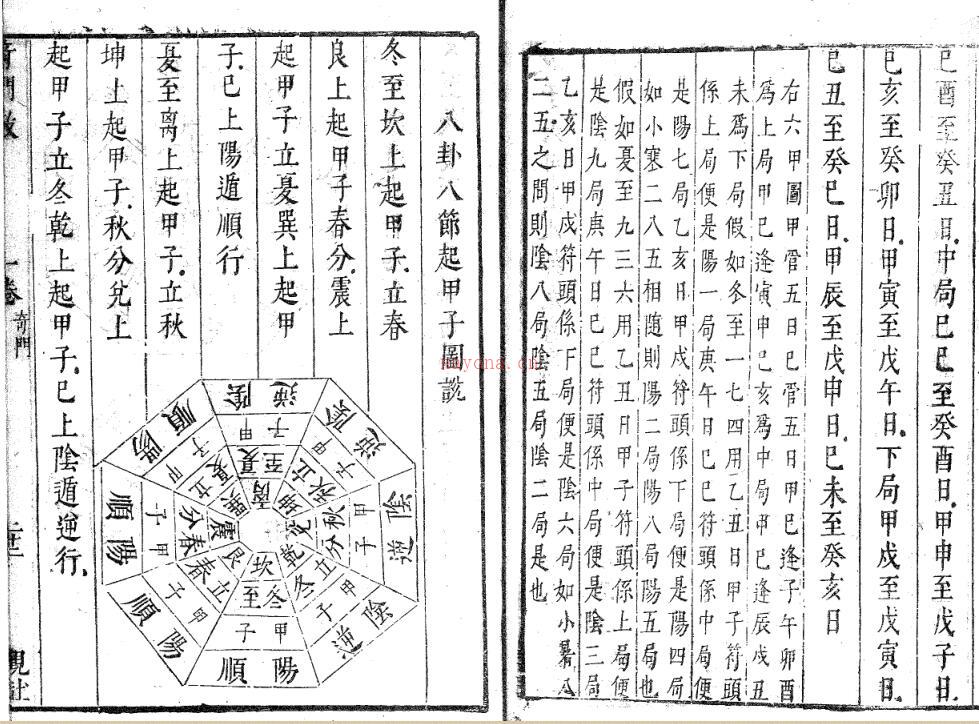 巳酉至癸丑日.中局巳巳至癸酉日.甲申至戊子日.
巳亥至癸卯日.甲寅至戊午日.下局甲戌至戊寅日.
巳丑至癸巳日.甲辰至戊申日.巳未至癸亥日
右六甲圖甲管五日巳管五日甲巳逢子午卯酉
爲上局甲巳逢寅申巳亥爲中局甲巳逢辰戌丑
未爲下局假如冬至一七四用乙丑日甲子符頭
係上局便是陽一局庚午日巳巳符頭係中局便
是陽七局乙亥日甲戌符頭係下局便是陽四局
如小寒二八五相隨則陽二局陽八局陽五局也
假如夏至九三六用乙丑日甲子符頭係上局便
是陰九局庚午日巳巳符頭係中局便是陰三局
乙亥日甲戌符頭係下局便是陰六局如小暑八
二五之間則陰八局陰五局陰二局是也
八卦八節起甲子圖說
冬至坎上起甲子.立春
艮上起甲子春分.震上
起甲子立夏巽上起甲
子.巳上陽遁順行
夏至离上起甲子.立秋
坤上起甲子.秋分兌上
起甲子立冬乾上起甲子.巳上陰遁逆行.
离
夏至
甲子
陰逆
坤
立秋
甲子
陰逆
兌
秋分
甲子
陰逆
乾
立冬
甲子
陰逆
坎
冬至
甲子
陽順
艮
立春
甲子
陽順
震
春分
甲子
陽順
巽
立夏
甲子
陽順
一卷
奇門